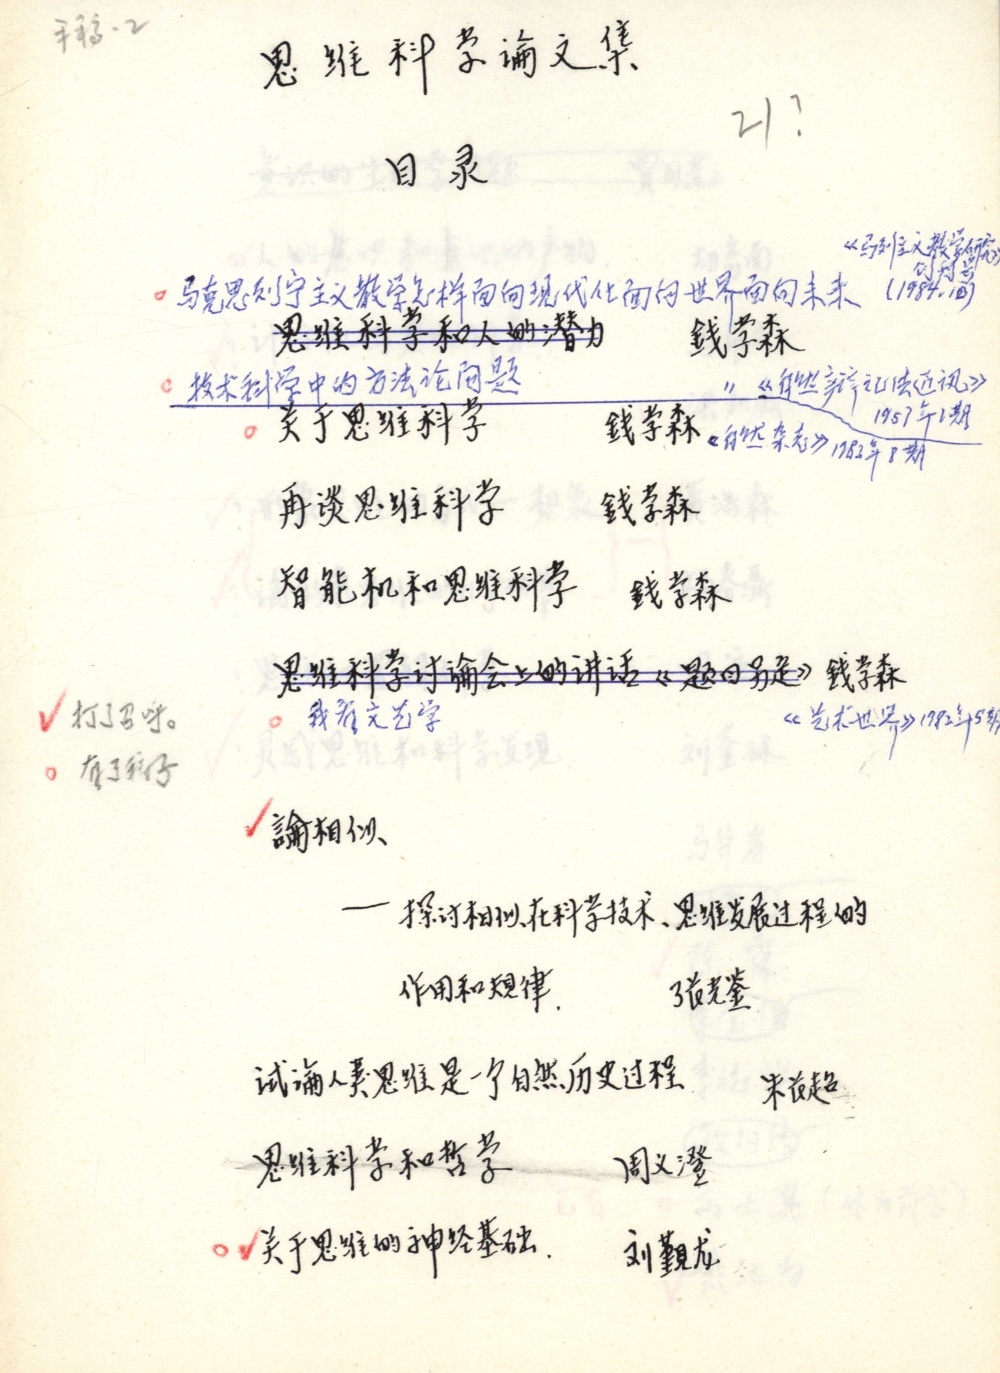 手稿-2
思维科学論文集
21?
目录
《马列主义教学研究》
创刊号
(1984.1期)
马克思列宁主义教学怎样面向现代化面向世界面向未来
思维科学和人的潜力 錢学森
技术科学中的方法论问题 〃 《自然辩证法通讯》
1957年1期
关于思维科学 錢学森 《自然杂志》1983年8期
再谈思维科学 錢学森
智能机和思维科学 錢学森
思维科学讨論会上的讲话《题目另定》 錢学森
我看文艺学 《艺术世界》1982年5期
打了召呼。
有了稿子
論相似
— 探讨相似在科学技术、思维发展过程的
作用和規律. 张光鉴
试論人类思维是一个自然历史过程 朱
思维科学和哲学 周义澄
关于思维的神经基础. 刘觐龙